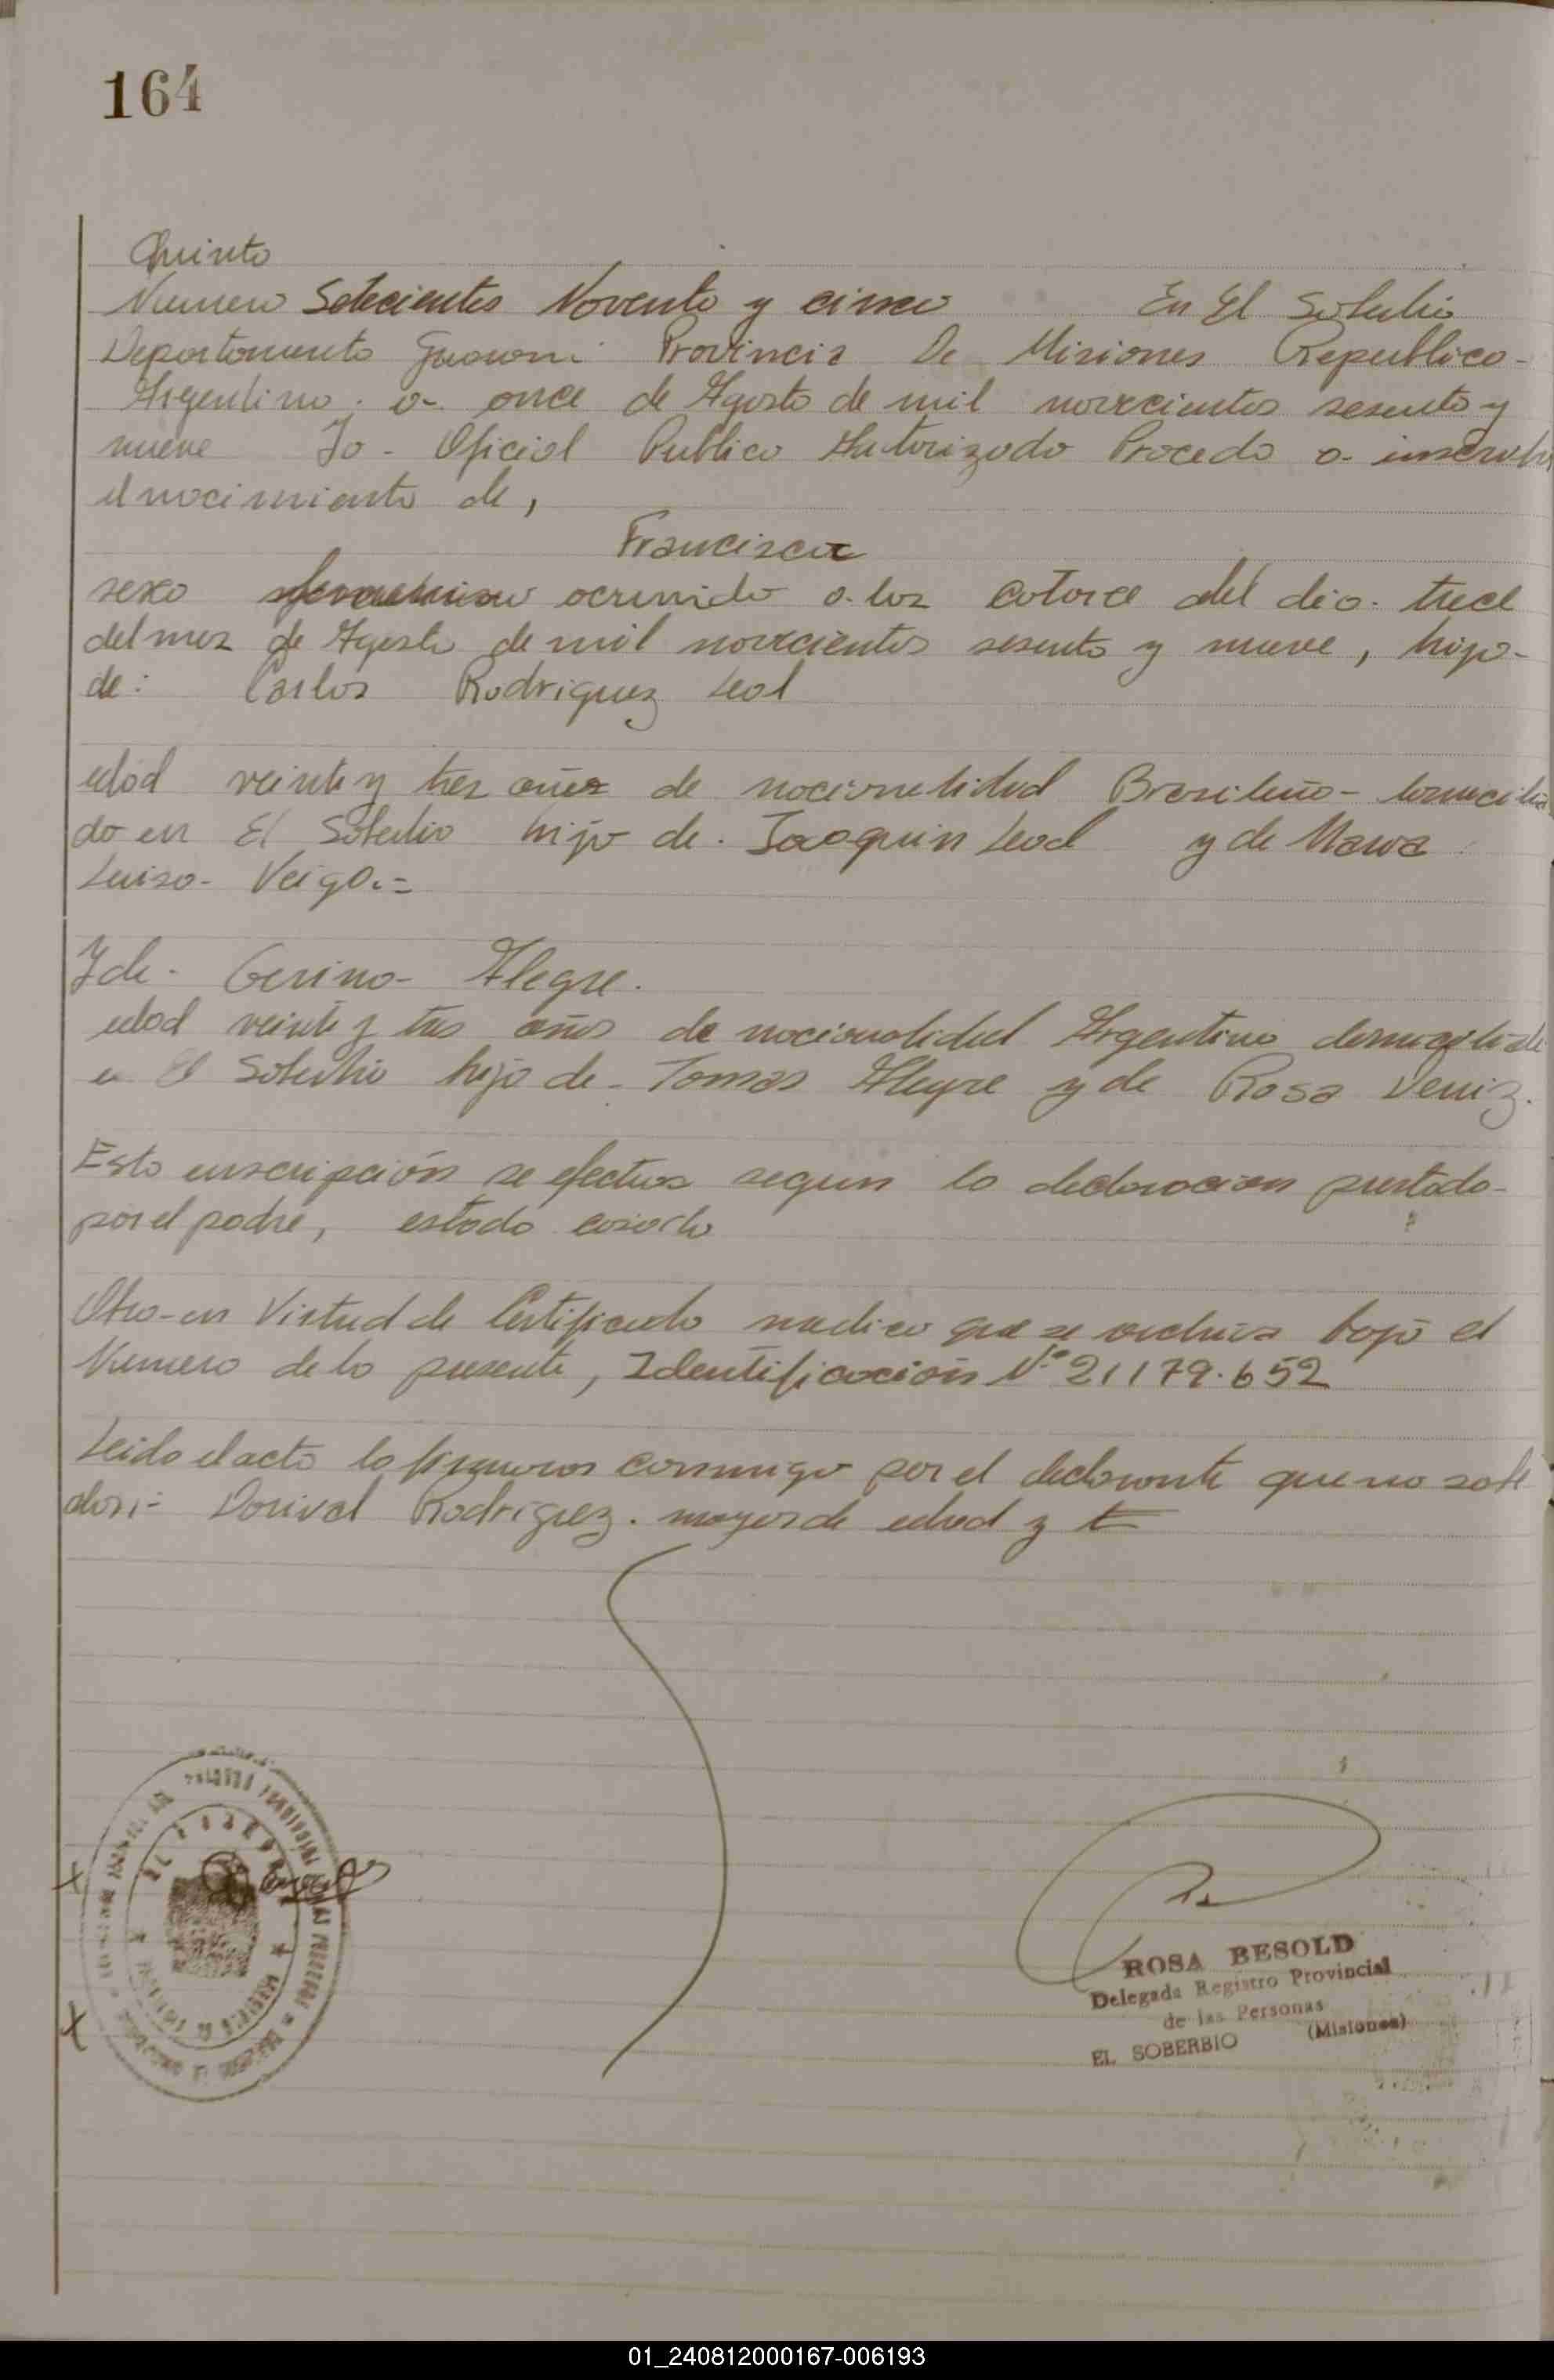 164
Quinto
Numero Setecientos Noventa y cinco En El Soberbio
Departamento Guarani Provincia De Misiones Republica
Argentina, a once de Agosto de mil novecientos sesenta y
nueve Yo Oficial Publico Autorizado Procedo a inscribir
el nacimiento de,
Francisca
sexo ocurrido a las catorce del dia trece
del mes de Agosto de mil novecientos sesenta y nueve, hijo
de: Carlos Rodriguez Leal
edad veinte y tres años de nacionalidad Brasileño domicilia
do en El Soberbio hijo de Joaquin Leal y de Maria
Luisa Veiga.=
Y de Alegre.
edad veinte y tres años de nacionalidad Argentina
en El Soberbio hija de Tomas Alegre y de Rosa
Esta inscripción se efectua segun la declaracion prestada
por el padre, estado casado
Otro en Virtud de Certificado medico que se archiva bajo el
Numero de la presente, Identificación Nº 21179.652
Leido el acta la conmigo por el declarante que no sabe
Dorival Rodriguez. mayor de edad y
EL SOBERBIO
ROSA BESOLD
Delegada Registro Provincial
de las Personas
EL SOBERBIO (Misiones)
01_240812000167-006193